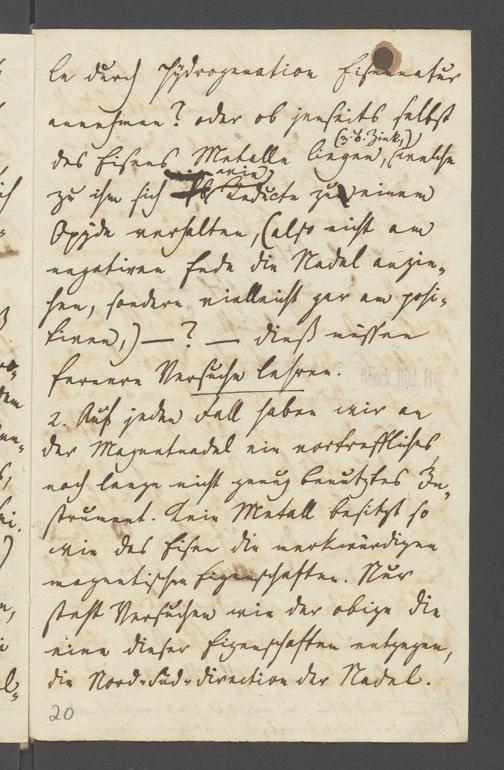 le durch Hydrogenation Eisennatur
annehmen? oder ob jenseits selbst
des Eisens Metalle liegen, (z. B. Zink,) (welche
zu ihm sich wie Educte zu einem
Oxyde verhalten, (also nicht am
negativen Ende die Nadel anzie-
hen, sondern vielleicht gar am posi-
tiven,) — ? — dieß müssen
fernere Versuche lehren.
2. Auf jeden Fall haben wir an
der Magnetnadel ein vortreffliches,
noch lange nicht genug benutztes In-
strument. Kein Metall besitzt so
wie das Eisen die merkwürdigen
magnetischen Eigenschaften. Nur
steht Versuchen wie der obige die
eine dieser Eigenschaften entgegen,
die Nord-Süd-direction der Nadel.
20